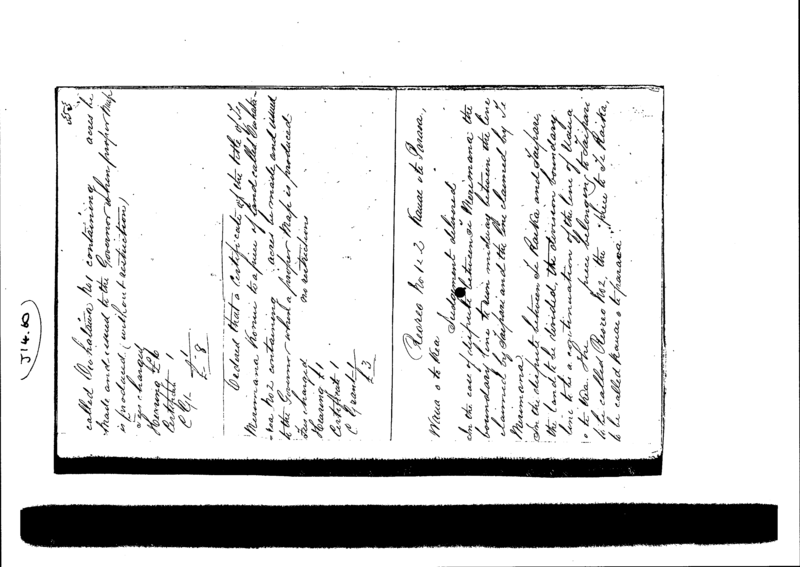 J 14.60
called Owhataiwa No 1 containing acres be
made and issued to the Governor when proper Map
is produced, (without restriction)
Fees charged
Hearing £6
Certificate 1
C G 1
£ 8
Ordered that a Certificate of the title of Te
Merimana Konui to a piece of land called Owhata
iwa No 2 containing acres be made and issued
to the Governor when a proper Map is produced
Fees charged no restrictions
Hearing £1
Certificate 1
C Grant 1
£3
Reoreo No 1 & 2 Kauae o te Paraoa,
o te Kea
Judgement delivered
In the case of dispute between Merimana the
boundary line to run midway between the line
claimed by Taipari and the line claimed by Te
Merimana
In the dispute between Te Raika and Taipari,
the land to be divided, the division boundary
line to be a continuation of the line of
o te Kea The piece belonging to Taipari
to be called Reoreo No 2, the piece to Te Raika,
to be called Kauae o te paraoa